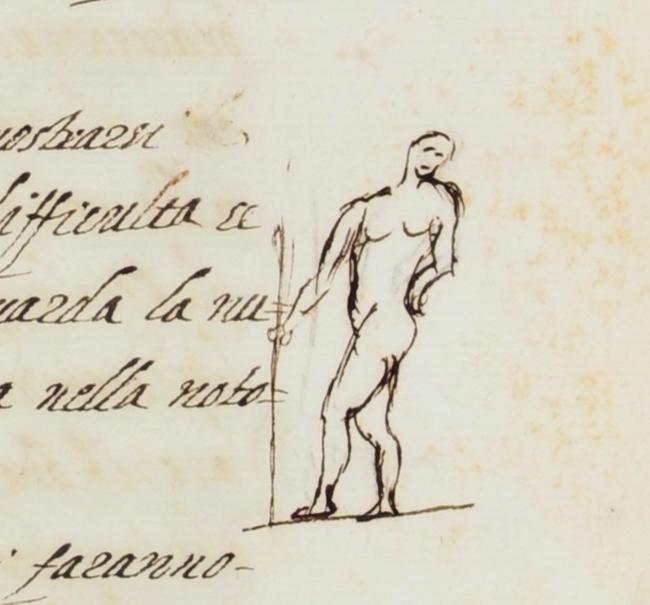 mostrarsi
difficulta se
guarda la nu=
a nella noto=
faranno-